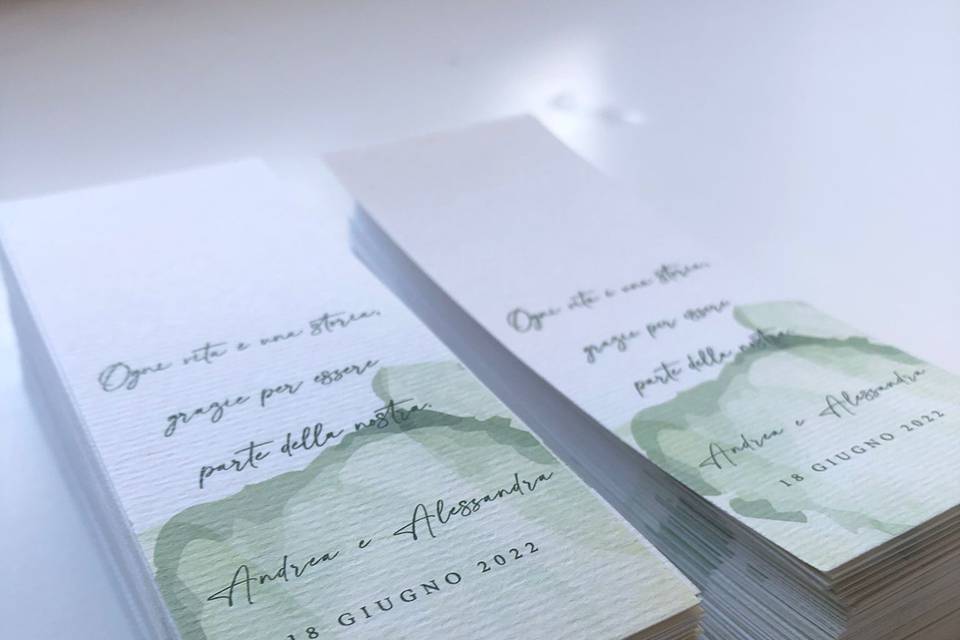 Ogni vita e una storia,
grazie per essere
parte della nostra.
Andrea e Alessandra
18 GIUGNO 2022
Ogni vita e una storia,
grazie per essere
parte della nostra.
Andrea e Alessandra
18 GIUGNO 2022